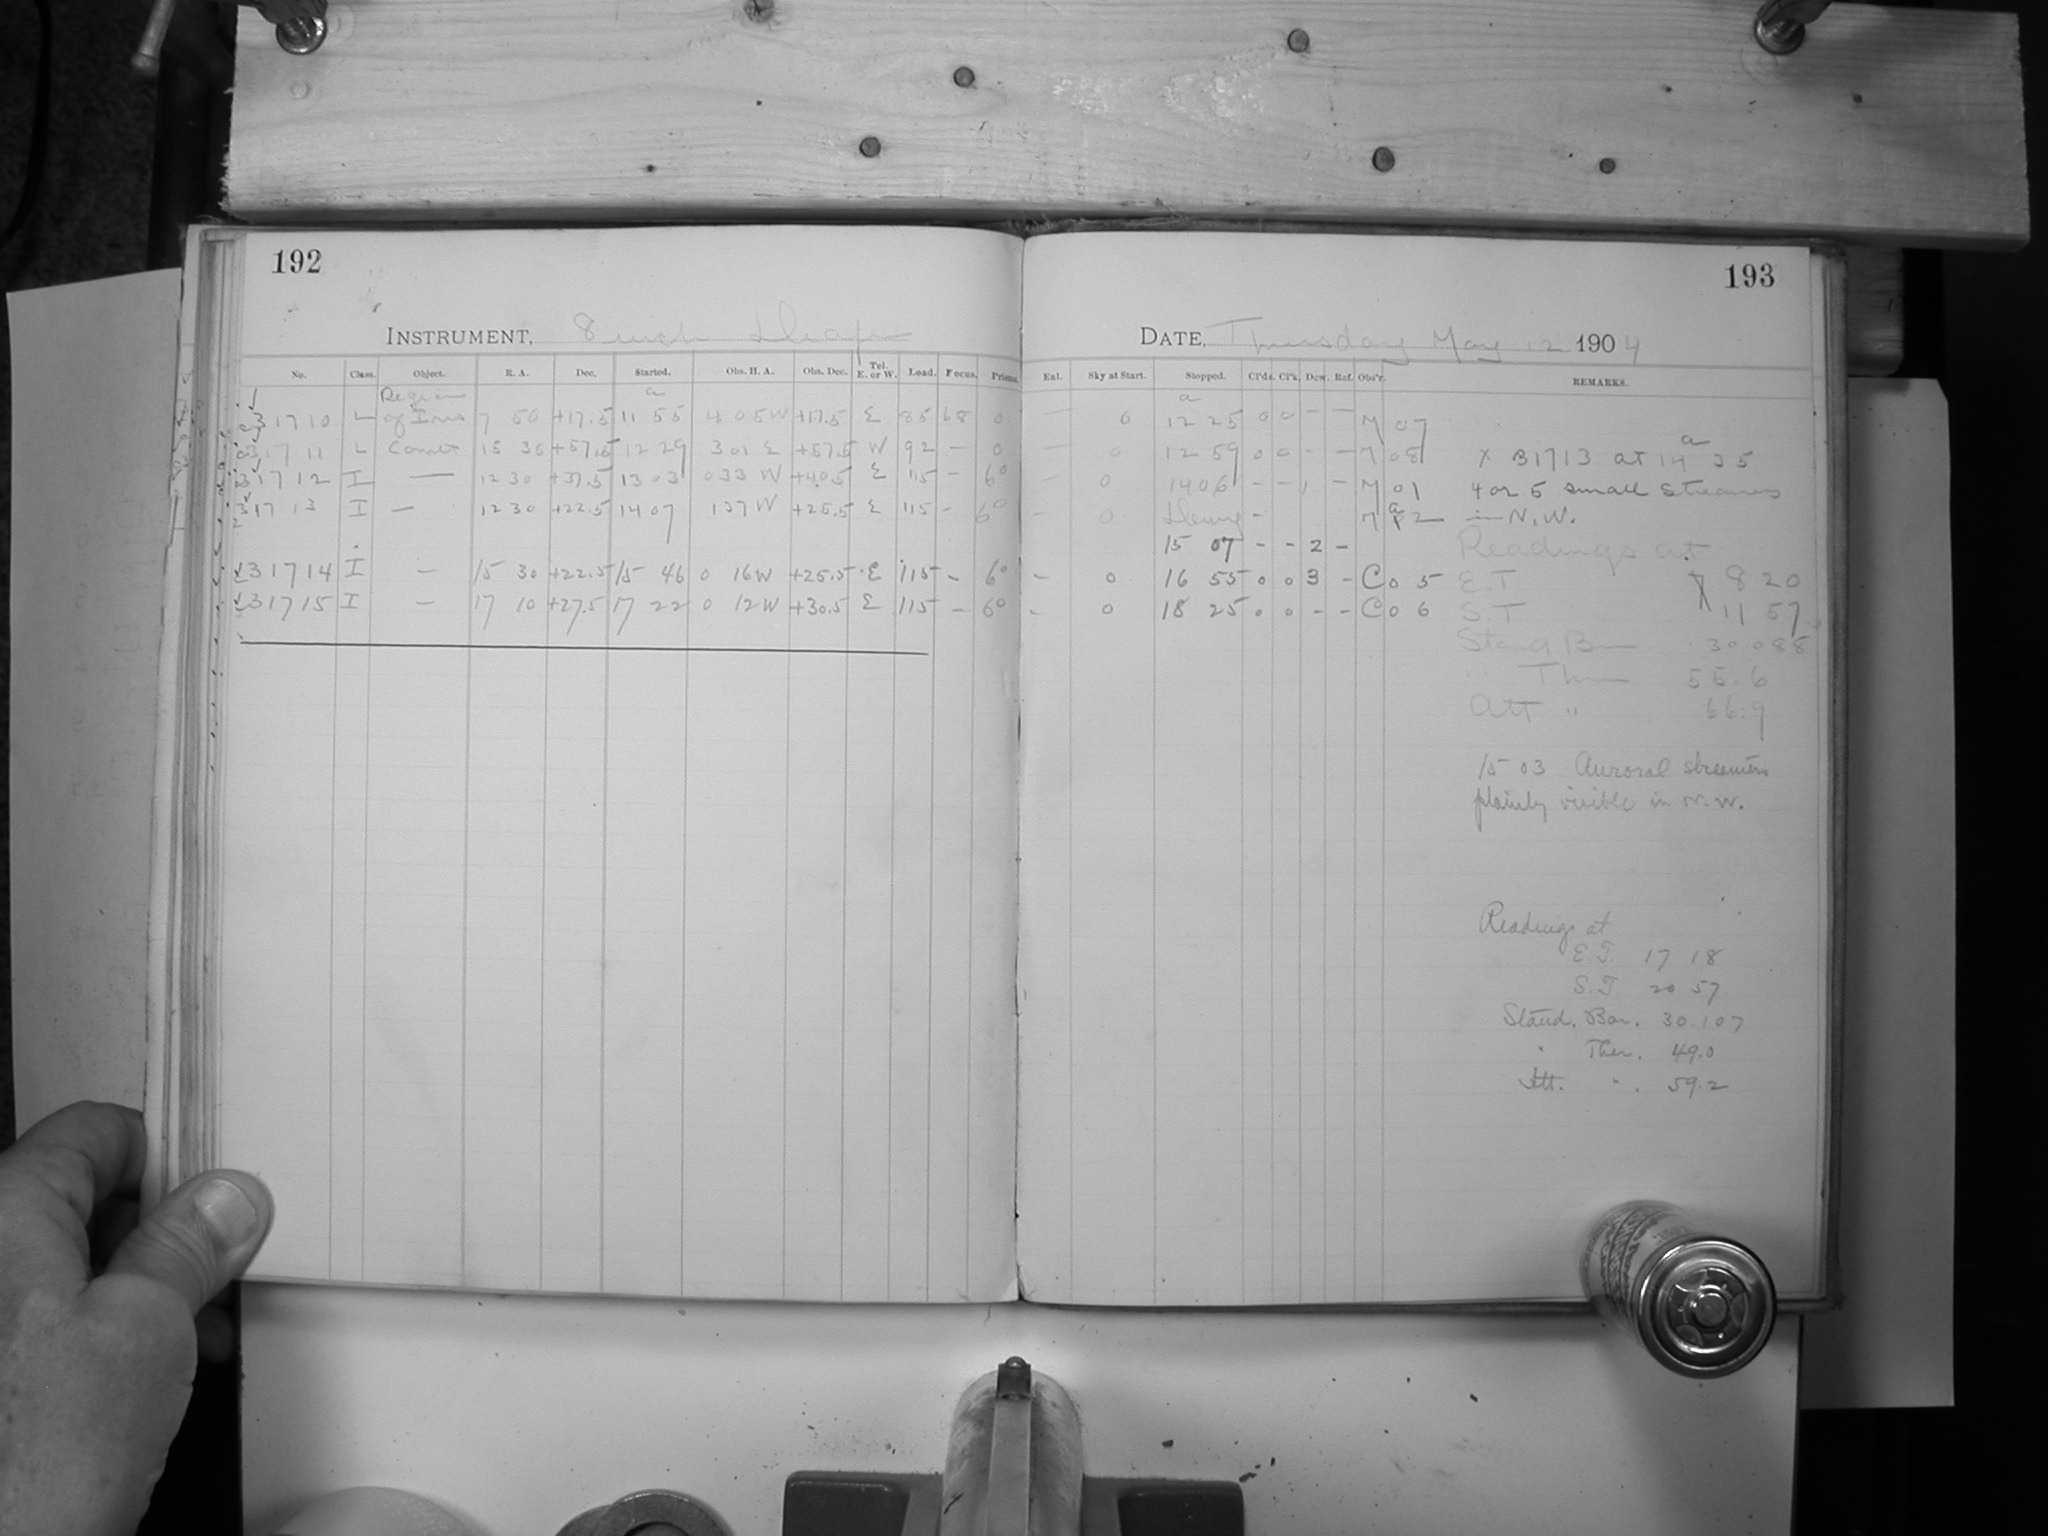 192
INSTRUMENT, 8 inch Draper
No. Class. Object. R. A. Dec. Started. Obs. H. A. Obs. Dec. Tel. E. or W. Load. Focus. Prisms.
Region a
31710 L of Iris 7 50 +17.5 11 55 4 05 W +17.5 E 85 68 0
31711 L Comet 15 30 +57.5 12 29 3 01 E +57.5 W 92 – 0
31712 I — 12 30 +37.5 13 03 0 33 W +40.5 E 115 – 6°
31713 I — 12 30 +22.5 14 07 1 37 W +25.5 E 115 – 6°
31714 I — 15 30 +22.5 15 46 0 16 W +25.5 E 115 – 6°
31715 I — 17 10 +27.5 17 22 0 12 W +30.5 E 115 – 6°
193
DATE, Thursday May 12 1904
Enl. Sky at Start. Stopped. Cl'ds. Cl'k. Dew. Ref. Obs'r. REMARKS.
a
— 0 12 25 0 0 – – M 07
— 0 12 59 0 0 – – M 08 x B1713 at 14 a 35
– 0 14 06 – – 1 – M 01 4 or 5 small streamers
– 0 – M 2 in N.W.
15 07 – – 2 – Readings at
– 0 16 55 0 0 3 – C 0 5 E.T 8 20
– 0 18 25 0 0 – – C 0 6 S.T 11 57
Stand Bar 30.088
" Ther 55.6
Att " 66.9
15 03 Auroral streamers
plainly visible in N.W.
Readings at
E.T. 17 18
S.T. 20 57
Stand. Bar. 30.107
" Ther. 49.0
Att. " . 59.2